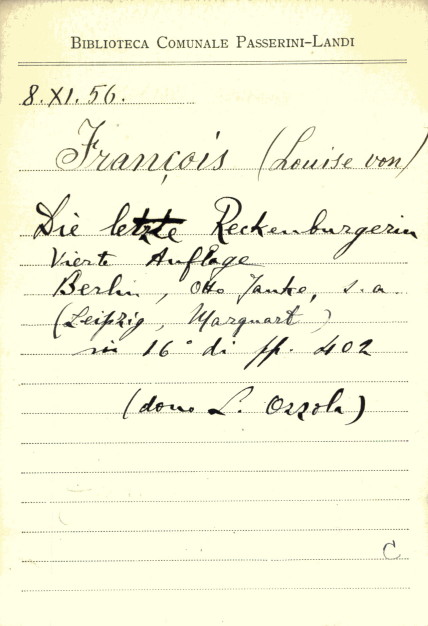 BIBLIOTECA COMUNALE PASSERINI-LANDI
8. XI. 56.
François (Louise von)
Die letzte Reckenburgerin
Vierte Auflage
Berlin, Otto Janke, s. a.
(Leipzig, Marquart)
in 16° di pp. 402
(dono L. Ozzola)
C